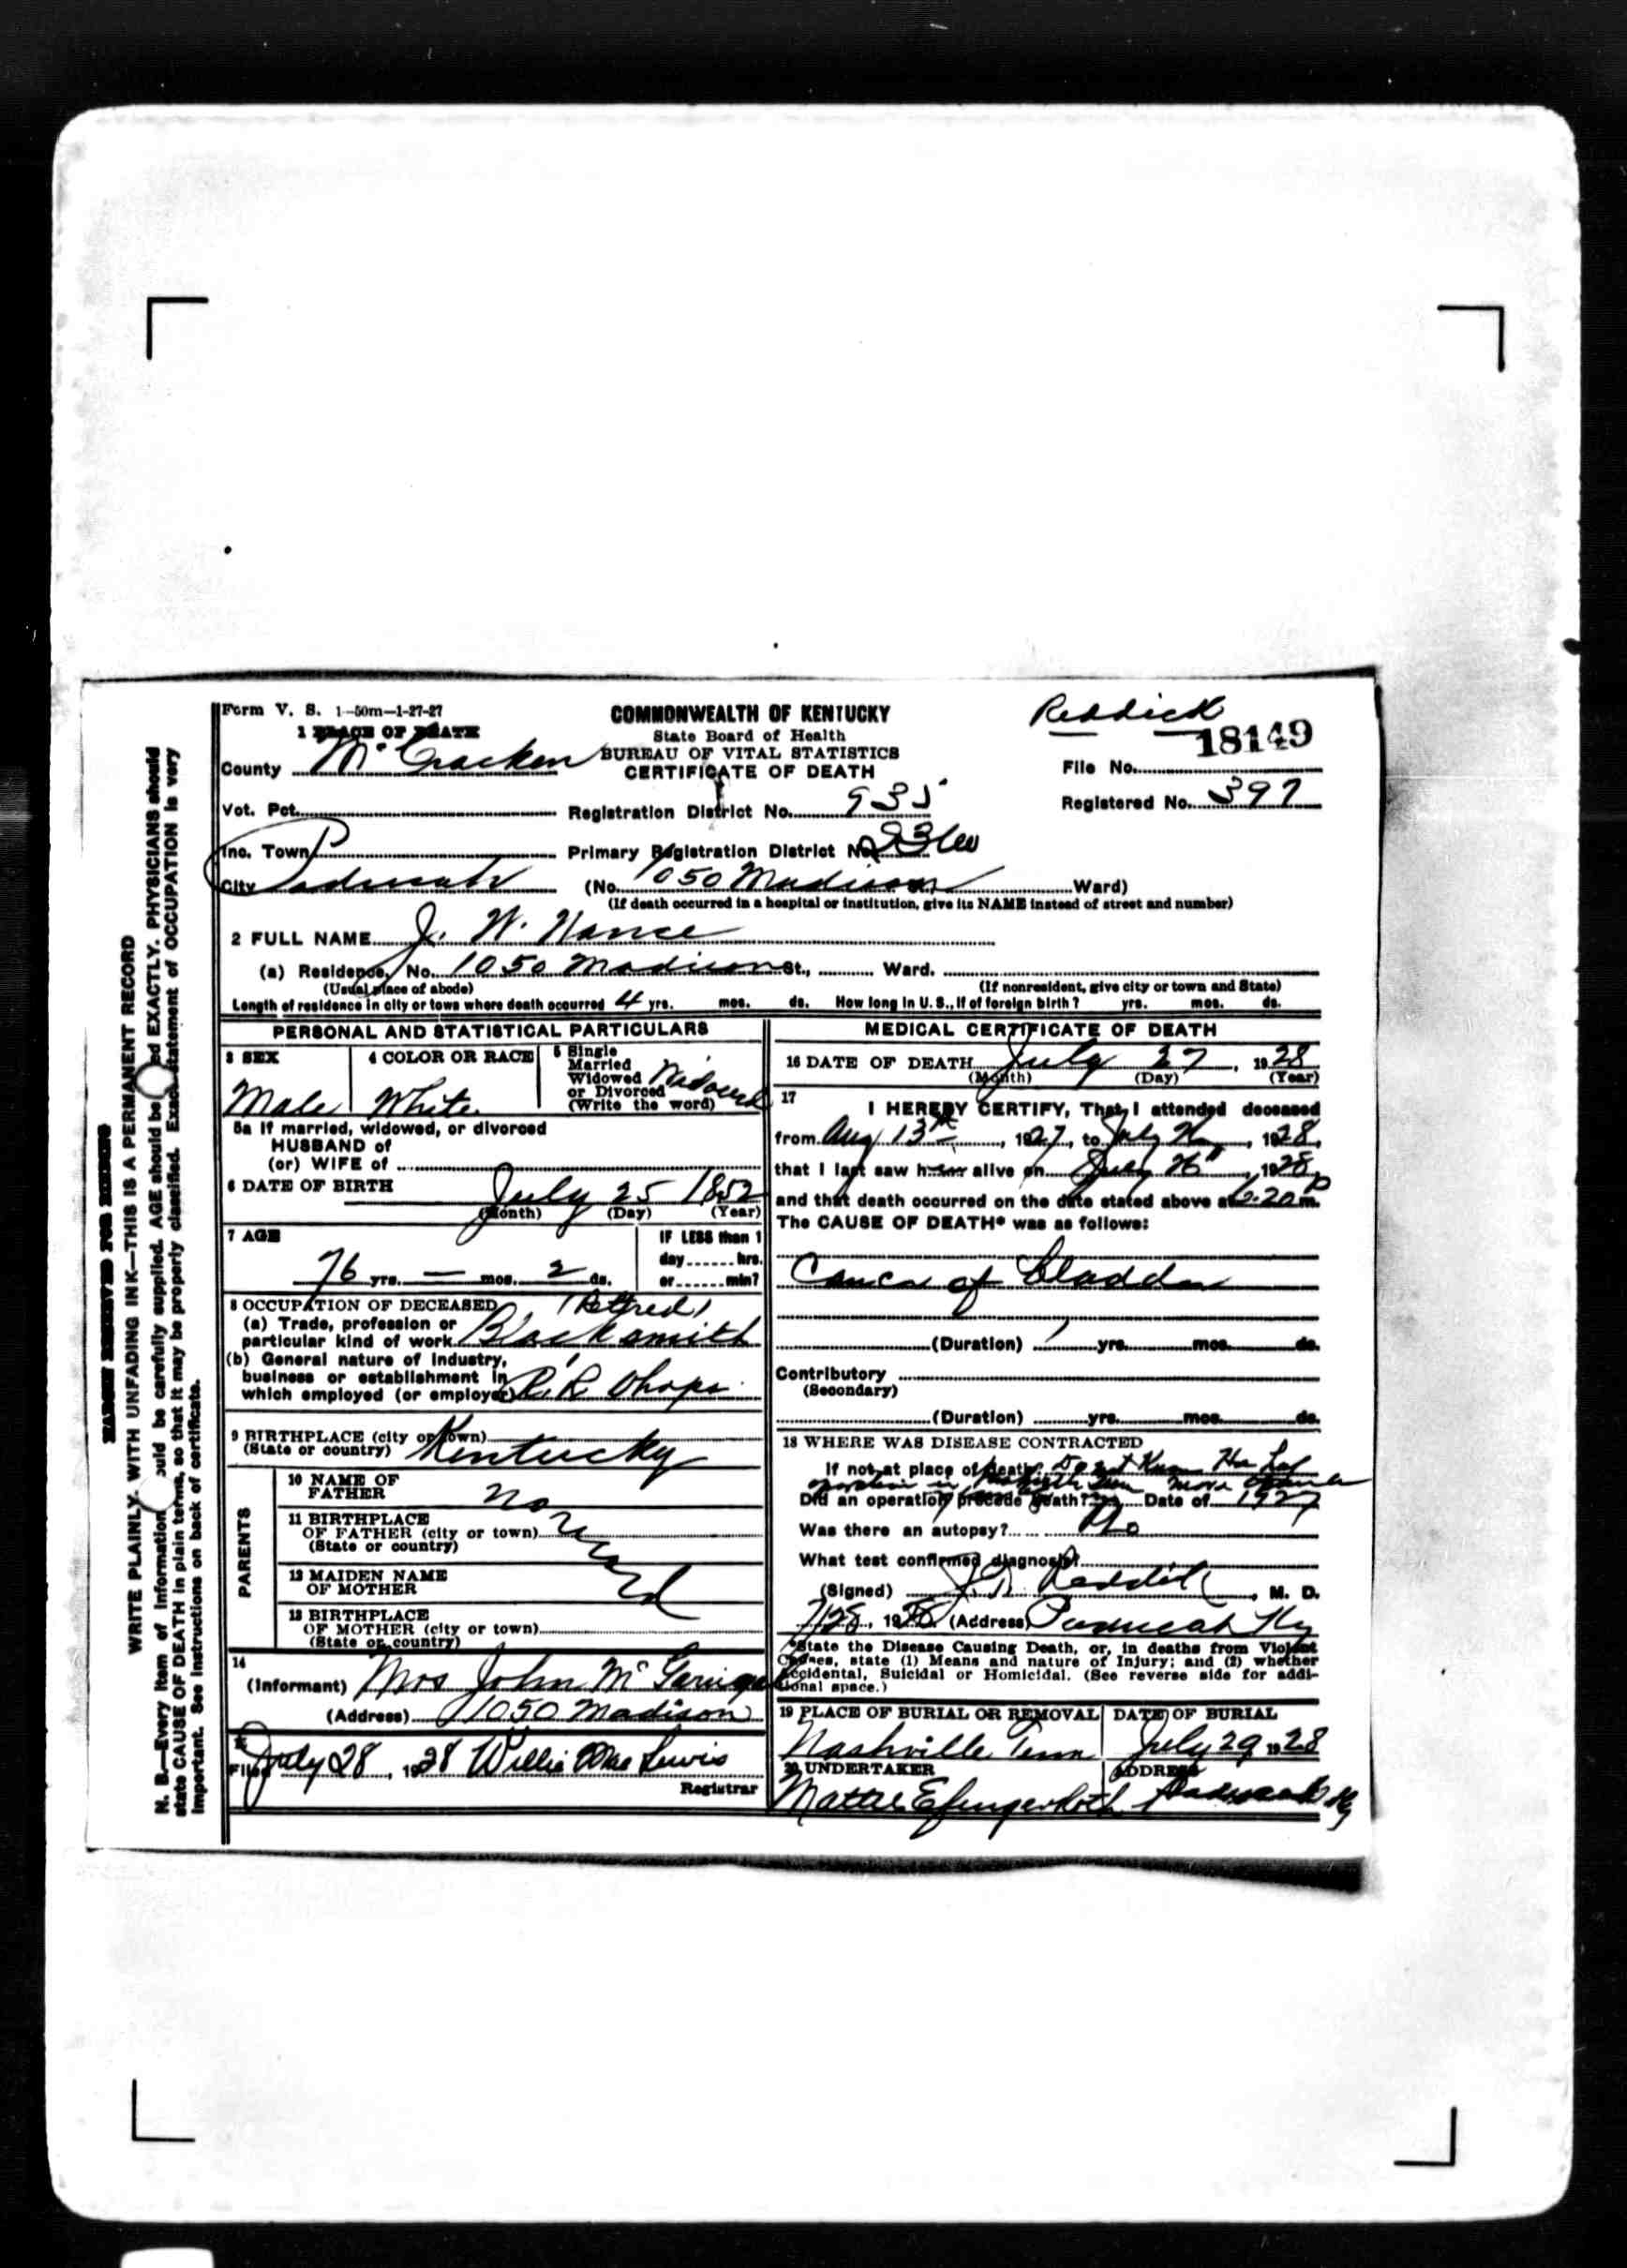 Form V. S. 1-50m-1-27-27
COMMONWEALTH OF KENTUCKY
Reddick
State Board of Health
18149
1 PLACE OF DEATH
BUREAU OF VITAL STATISTICS
County McCracken
CERTIFICATE OF DEATH
File No.
Vot. Pct. Registration District No. 935
Registered No. 397
Inc. Town Primary Registration District No.
City Paducah (No. 1050 Madison Ward)
(If death occurred in a hospital or institution, give its NAME instead of street and number)
2 FULL NAME J. W. Nance
(a) Residence, No. 1050 Madison St., Ward.
(Usual place of abode) (If nonresident, give city or town and State)
Length of residence in city or town where death occurred 4 yrs. mos. ds. How long in U. S., if of foreign birth? yrs. mos. ds.
PERSONAL AND STATISTICAL PARTICULARS
3 SEX
Male
4 COLOR OR RACE
White
5 Single
Married
Widowed
or Divorced
(Write the word)
Widowed
5a If married, widowed, or divorced
HUSBAND of
(or) WIFE of
6 DATE OF BIRTH July 25 1852
(Month) (Day) (Year)
7 AGE
76 yrs. — mos. 2 ds.
IF LESS than 1
day hrs.
or min?
8 OCCUPATION OF DECEASED (Retired)
(a) Trade, profession or
particular kind of work Blacksmith
(b) General nature of industry,
business or establishment in
which employed (or employer) R. R. Shops
9 BIRTHPLACE (city or town)
(State or country) Kentucky
PARENTS
10 NAME OF
FATHER
11 BIRTHPLACE
OF FATHER (city or town)
(State or country)
12 MAIDEN NAME
OF MOTHER
13 BIRTHPLACE
OF MOTHER (city or town)
(State or country)
No Record
14
(Informant) Mrs John
(Address) 1050 Madison
Filed July 28, 1928 Willie Mae Lewis
Registrar
MEDICAL CERTIFICATE OF DEATH
16 DATE OF DEATH July 27, 1928
(Month) (Day) (Year)
17
I HEREBY CERTIFY, That I attended deceased
from Aug 13th, 1927, to July, 1928,
that I last saw h alive on July 26th, 1928,
and that death occurred on the date stated above at 6.20 P m.
The CAUSE OF DEATH* was as follows:
Cancer of bladder
(Duration) 1 yrs. mos. ds.
Contributory
(Secondary)
(Duration) yrs. mos. ds.
18 WHERE WAS DISEASE CONTRACTED
If not at place of death? Do not Know He had
operation in
Did an operation precede death? Date of 1927
Was there an autopsy? No
What test confirmed diagnosis?
(Signed) Reddick, M. D.
7/28, 1928 (Address) Paducah Ky
*State the Disease Causing Death, or, in deaths from Violent
Causes, state (1) Means and nature of Injury; and (2) whether
Accidental, Suicidal or Homicidal. (See reverse side for addi-
tional space.)
19 PLACE OF BURIAL OR REMOVAL
Nashville Tenn
DATE OF BURIAL
July 29 1928
20 UNDERTAKER
Mattie Efinger Roth
ADDRESS
Paducah Ky
MARGIN RESERVED FOR BINDING
WRITE PLAINLY, WITH UNFADING INK—THIS IS A PERMANENT RECORD
N. B.—Every item of information should be carefully supplied. AGE should be stated EXACTLY. PHYSICIANS should
state CAUSE OF DEATH in plain terms, so that it may be properly classified. Exact statement of OCCUPATION is very
important. See instructions on back of certificate.